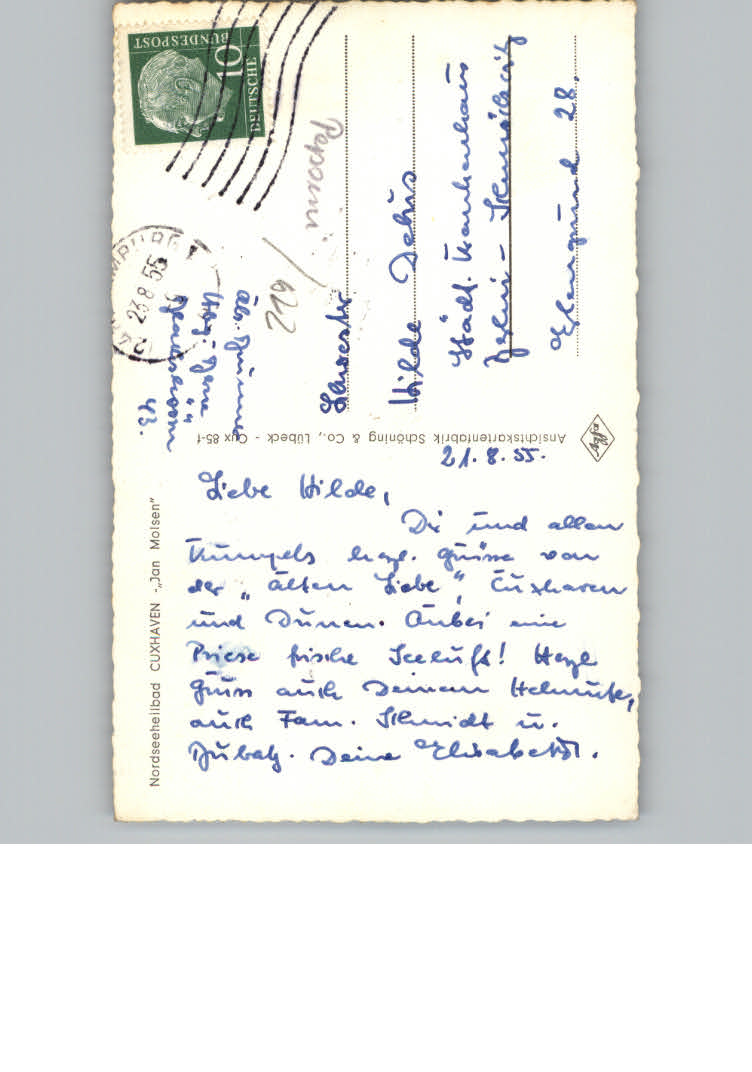 DEUTSCHE
BUNDESPOST
10
23.8.55
622
43.
Schwester
Hilde
Städt. Krankenhaus
28.
Ansichtskartenfabrik Schöning & Co., Lübeck - Cux 85-f
Nordseeheilbad CUXHAVEN - „Jan Molsen"
21.8.55.
Liebe Hilde,
Dir und allen
Kumpels herzl. Grüsse von
der „Alten Liebe", Cuxhaven
und Dunen. Anbei eine
Priese frische Seeluft! Herzl
Gruss auch Deinem Helmut,
auch Fam. Schmidt u.
Deine Elisabeth.